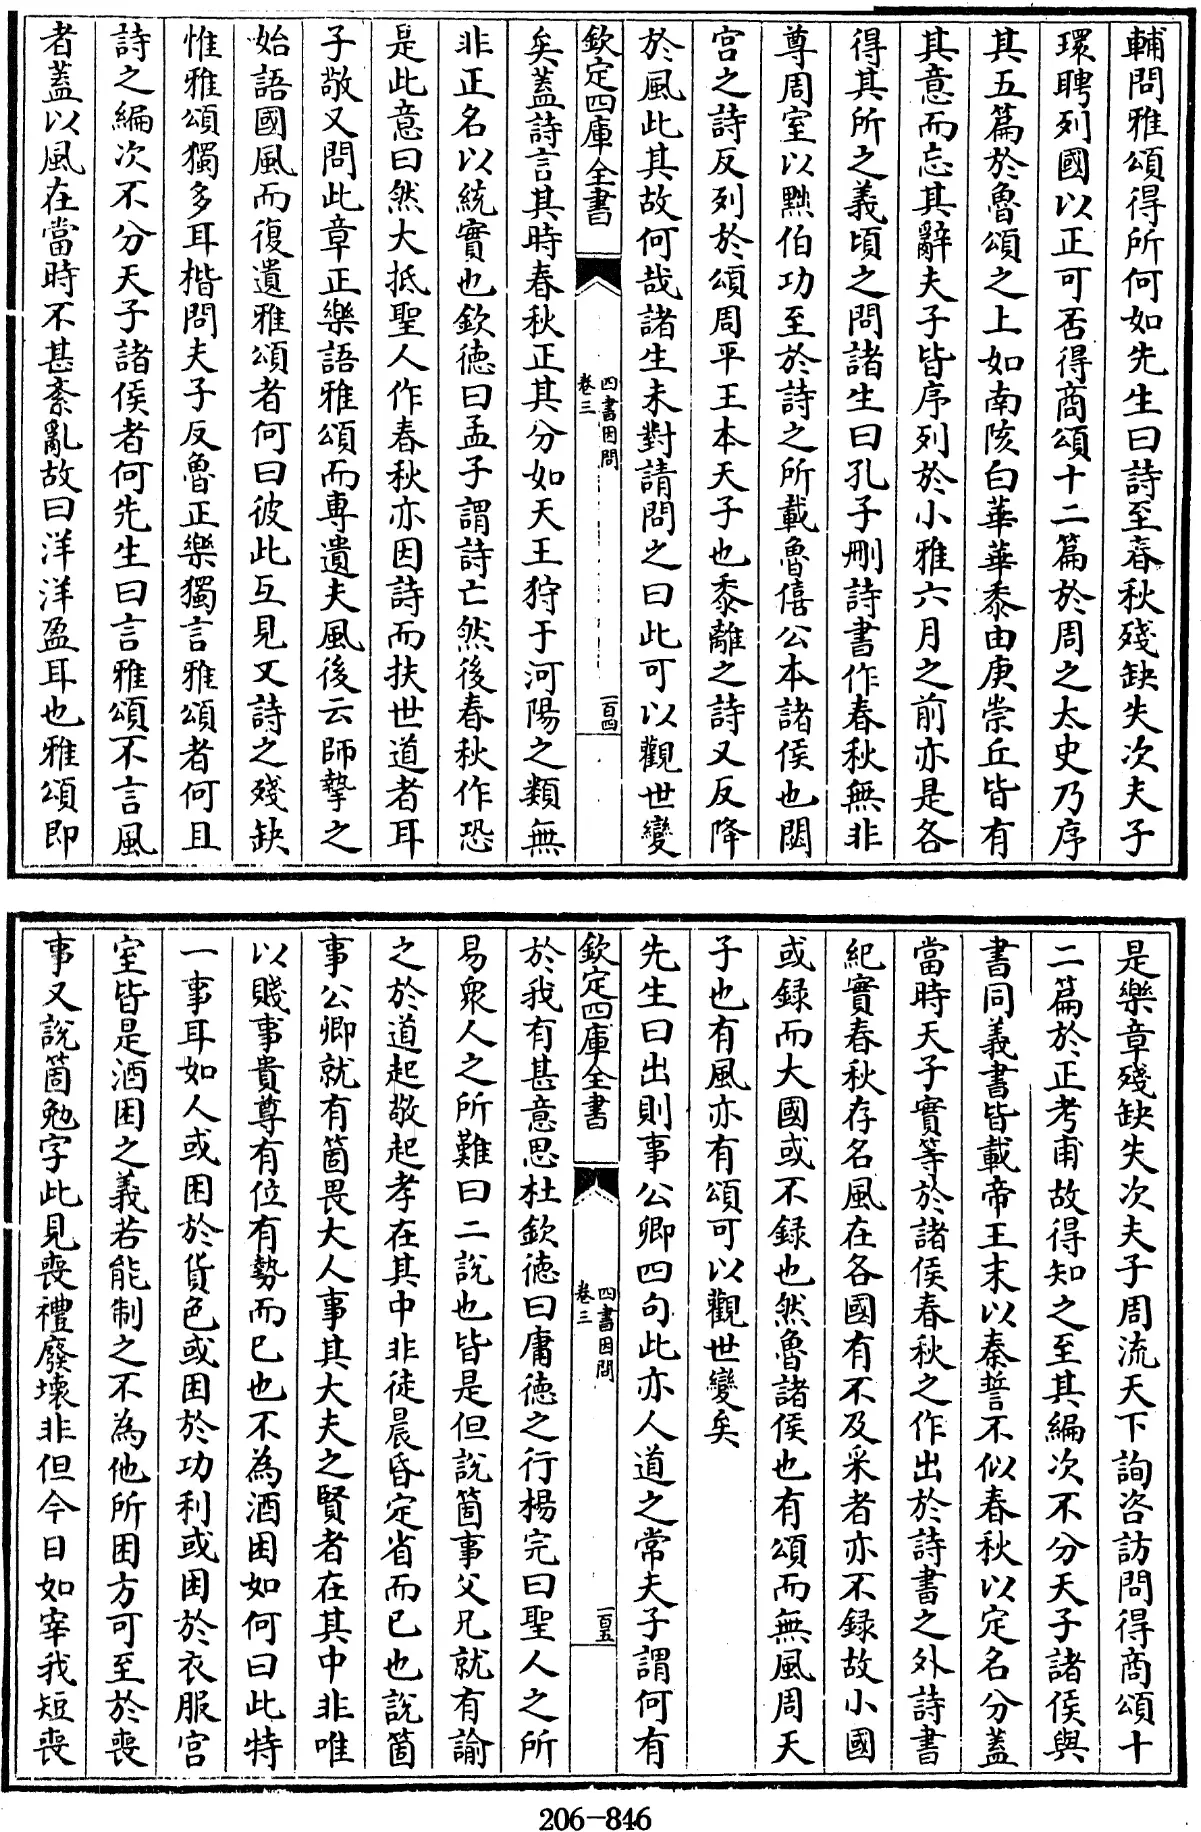 輔問雅頌得所何如先生曰詩至春秋殘缺失次夫子
環聘列國以正可否得商頌十二篇於周之太史乃序
其五篇於魯頌之上如南陔白華華黍由庚崇丘皆有
其意而忘其辭夫子皆序列於小雅六月之前亦是各
得其所之義頃之問諸生曰孔子刪詩書作春秋無非
尊周室以黜伯功至於詩之所載魯僖公本諸侯也閟
宮之詩反列於頌周平王本天子也黍離之詩又反降
於風此其故何哉諸生未對請問之曰此可以觀世變
欽定四庫全書
四書因問
卷三
一百四
矣蓋詩言其時春秋正其分如天王狩于河陽之類無
非正名以統實也欽德曰孟子謂詩亡然後春秋作恐
是此意曰然大抵聖人作春秋亦因詩而扶世道者耳
子敬又問此章正樂語雅頌而專遺夫風後云師摯之
始語國風而復遺雅頌者何曰彼此互見又詩之殘缺
惟雅頌獨多耳楷問夫子反魯正樂獨言雅頌者何且
詩之編次不分天子諸侯者何先生曰言雅頌不言風
者蓋以風在當時不甚紊亂故曰洋洋盈耳也雅頌即
是樂章殘缺失次夫子周流天下詢咨訪問得商頌十
二篇於正考甫故得知之至其編次不分天子諸侯與
書同義書皆載帝王末以秦誓不似春秋以定名分蓋
當時天子實等於諸侯春秋之作出於詩書之外詩書
紀實春秋存名風在各國有不及采者亦不錄故小國
或錄而大國或不錄也然魯諸侯也有頌而無風周天
子也有風亦有頌可以觀世變矣
先生曰出則事公卿四句此亦人道之常夫子謂何有
欽定四庫全書
四書因問
卷三
一百五
於我有甚意思杜欽德曰庸德之行楊完曰聖人之所
易眾人之所難曰二說也皆是但說箇事父兄就有諭
之於道起敬起孝在其中非徒晨昏定省而已也說箇
事公卿就有箇畏大人事其大夫之賢者在其中非唯
以賤事貴尊有位有勢而已也不為酒困如何曰此特
一事耳如人或困於貨色或困於功利或困於衣服宮
室皆是酒困之義若能制之不為他所困方可至於喪
事又說箇勉字此見喪禮廢壞非但今日如宰我短喪
206-846